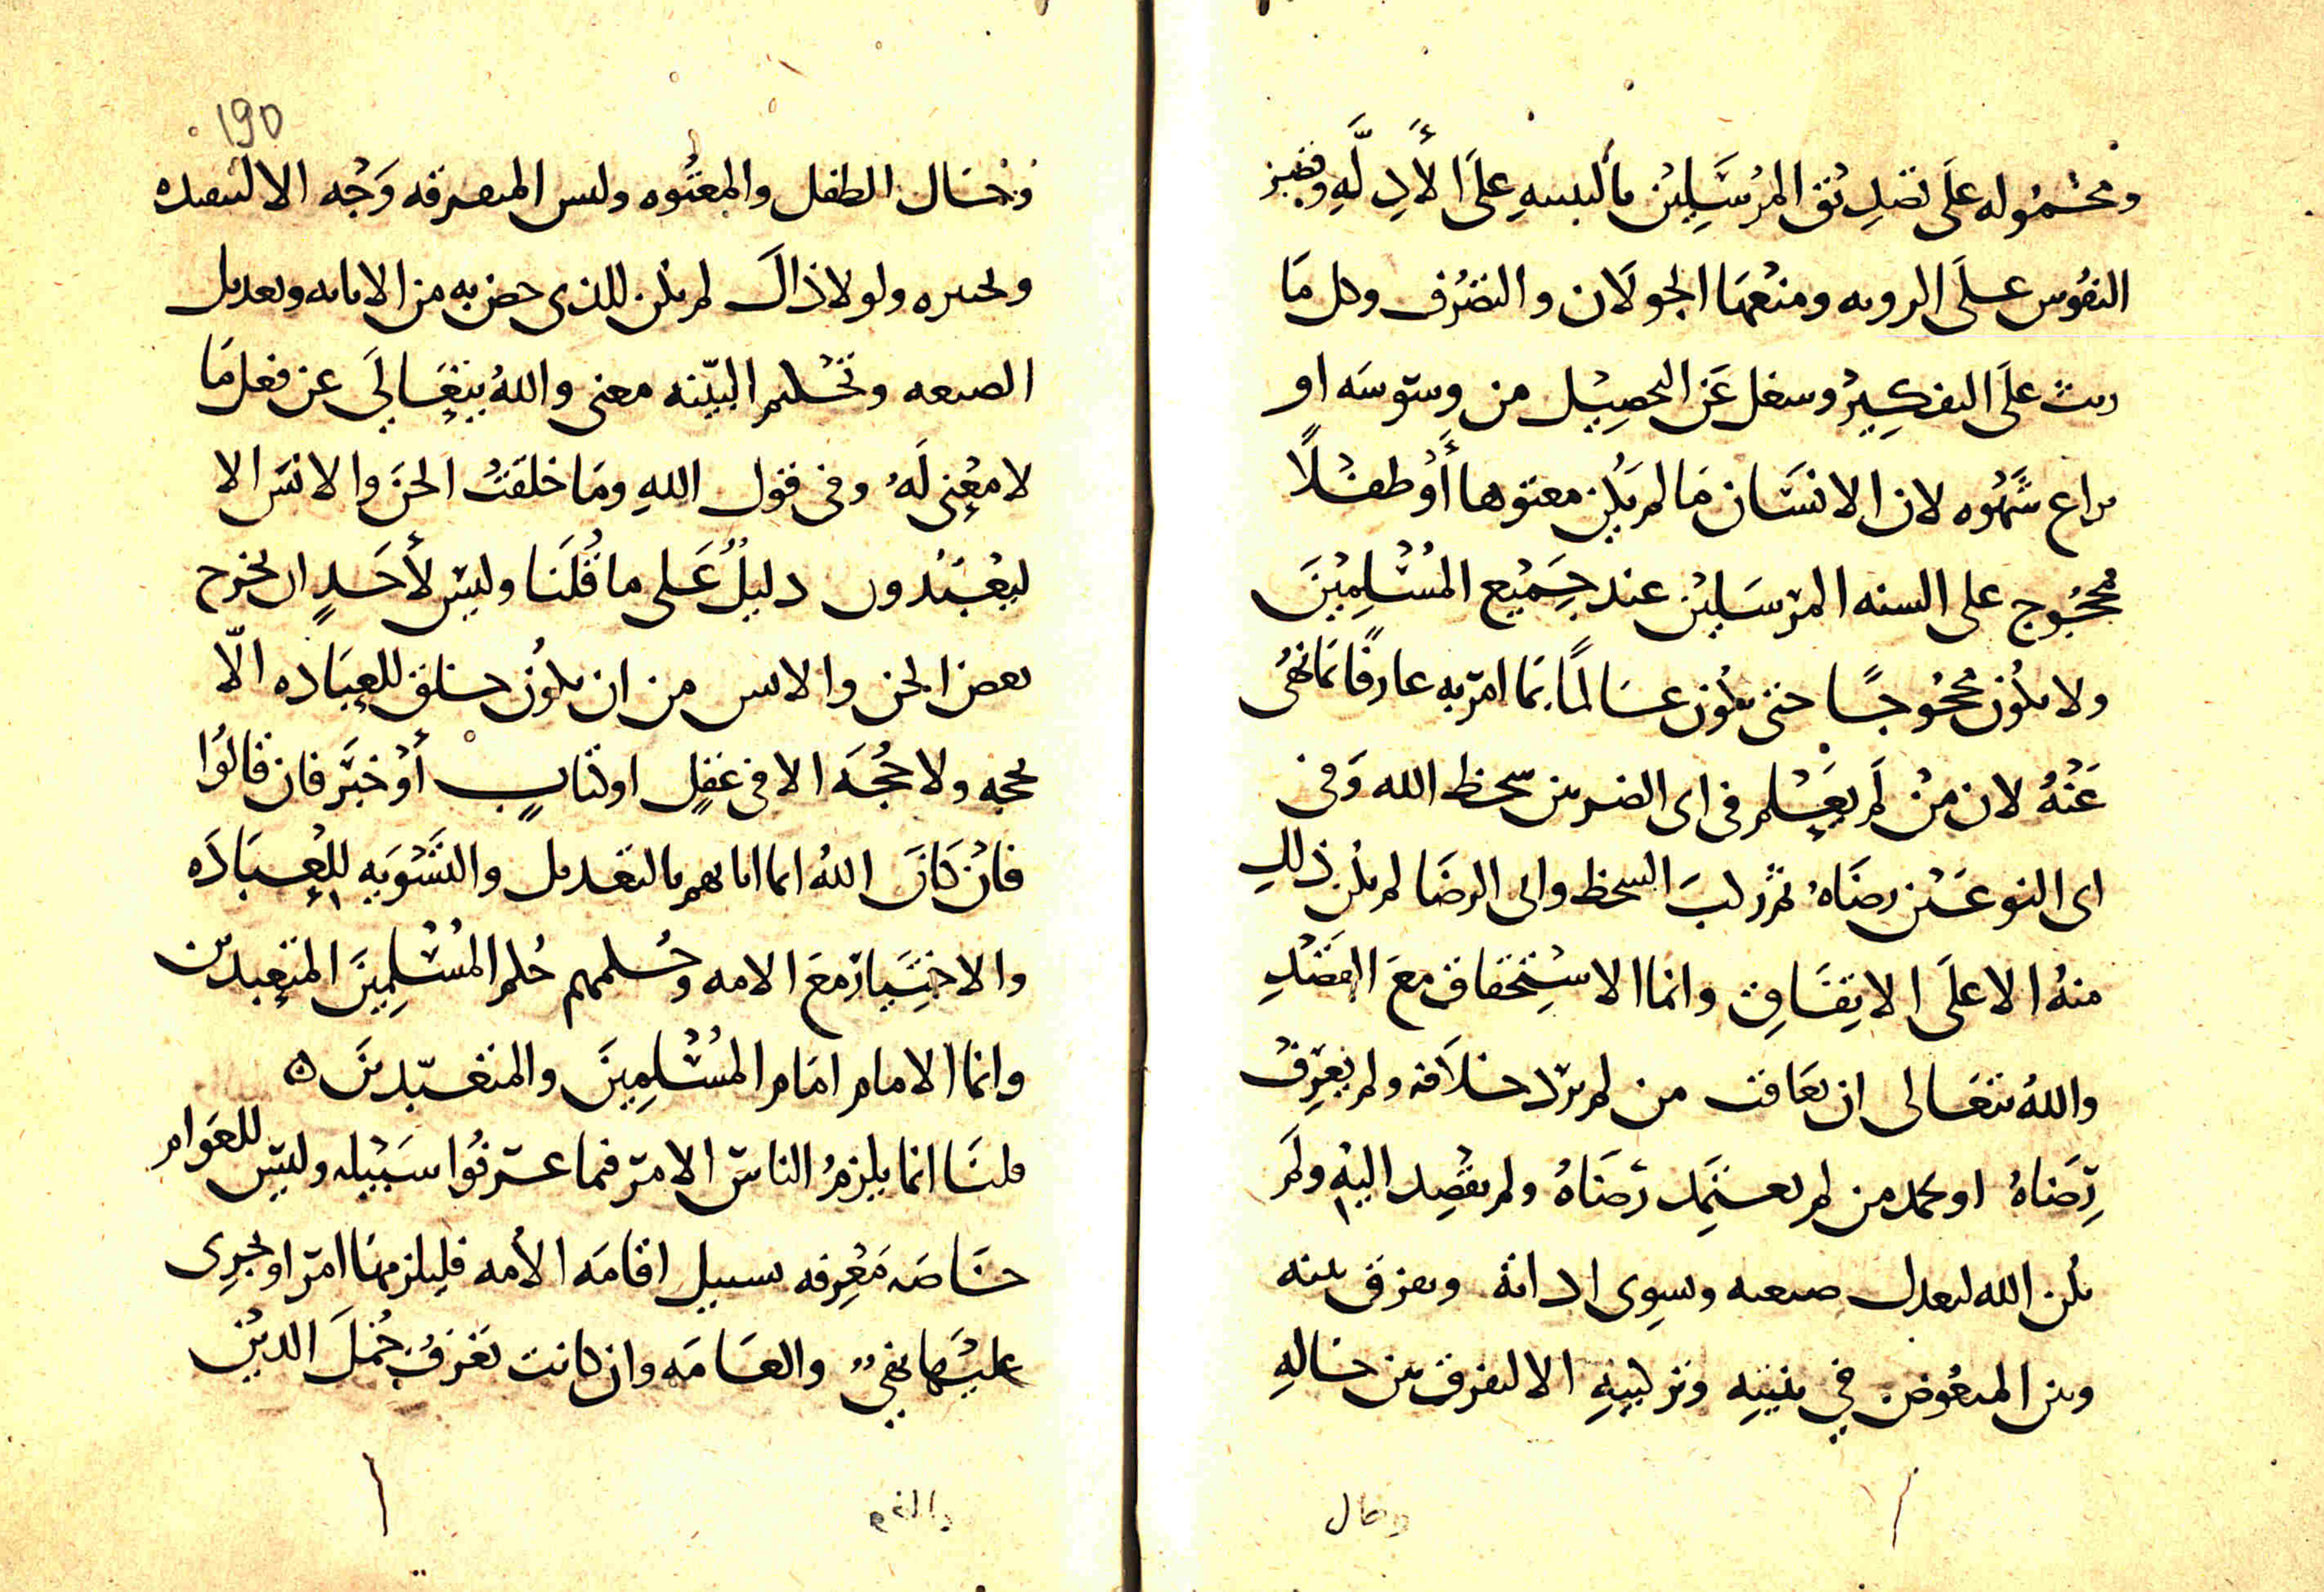 ومحمولة على تصديق المرسلين بالتنبيه على الأدلة وقصر
النفوس على الروية ومنعها الجولان والتصرف وكل ما
ريث على التفكير وشغل عن التحصيل من وسوسة او
نزاع شهوه لان الانسان ما لم يكن معتوها أو طفلاً
محجوج على السنه المرسلين عند جميع المسلمين
ولا يكون محجوجا حتى يكون عالماً بما امر به عارفاً بما نهي
عنه لان من لم يعلم في اي الضربين سخط الله وفي
اي النوعين رضاه ثم ركب السخط واتى الرضا لم يكن ذلك
منه الا على الاتفاق وانما الاستحقاق مع القصد
والله يتعالى ان يعاقب من لم يرد خلافه ولم يعرف
رضاه او يحمد من لم يعتمد رضاه ولم يقصد اليه ولم
يكن الله ليعدل صنعه ويسوي اداته ويفرق بينه
وبين المنقوص في بنيته وتركيبه الا ليفرق بين حاله
190
وحال الطفل والمعتوه وليس للمعرفه وجه الا لتبصره
وتخيره ولولا ذاك لم يكن للذي خص به من الابانه وتعديل
الصنعه وتحكيم البنيه معنى والله يتعالى عن فعل ما
لا معنى له وفي قول الله وما خلقت الجن والانس الا
ليعبدون دليل على ما قلنا وليس لأحد ان يخرج
بعض الجن والانس من ان يكون خلق للعباده الا
بحجه ولا حجة الا في عقل او كتاب أو خبر فان قالوا
فان كان الله انما ابانهم بالتعديل والتسويه للعبادة
والاختيار مع الامه وحكمهم حكم المسلمين المتعبدين
وانما الامام امام المسلمين والمتعبدين ه
قلنا انما يلزم الناس الامر فيما عرفوا سبيله وليس للعوام
خاصه معرفه سبيل اقامه الأمه فيلزمها امر او يجري
عليها نهي والعامه وان كانت تعرف جمل الدين
وحال